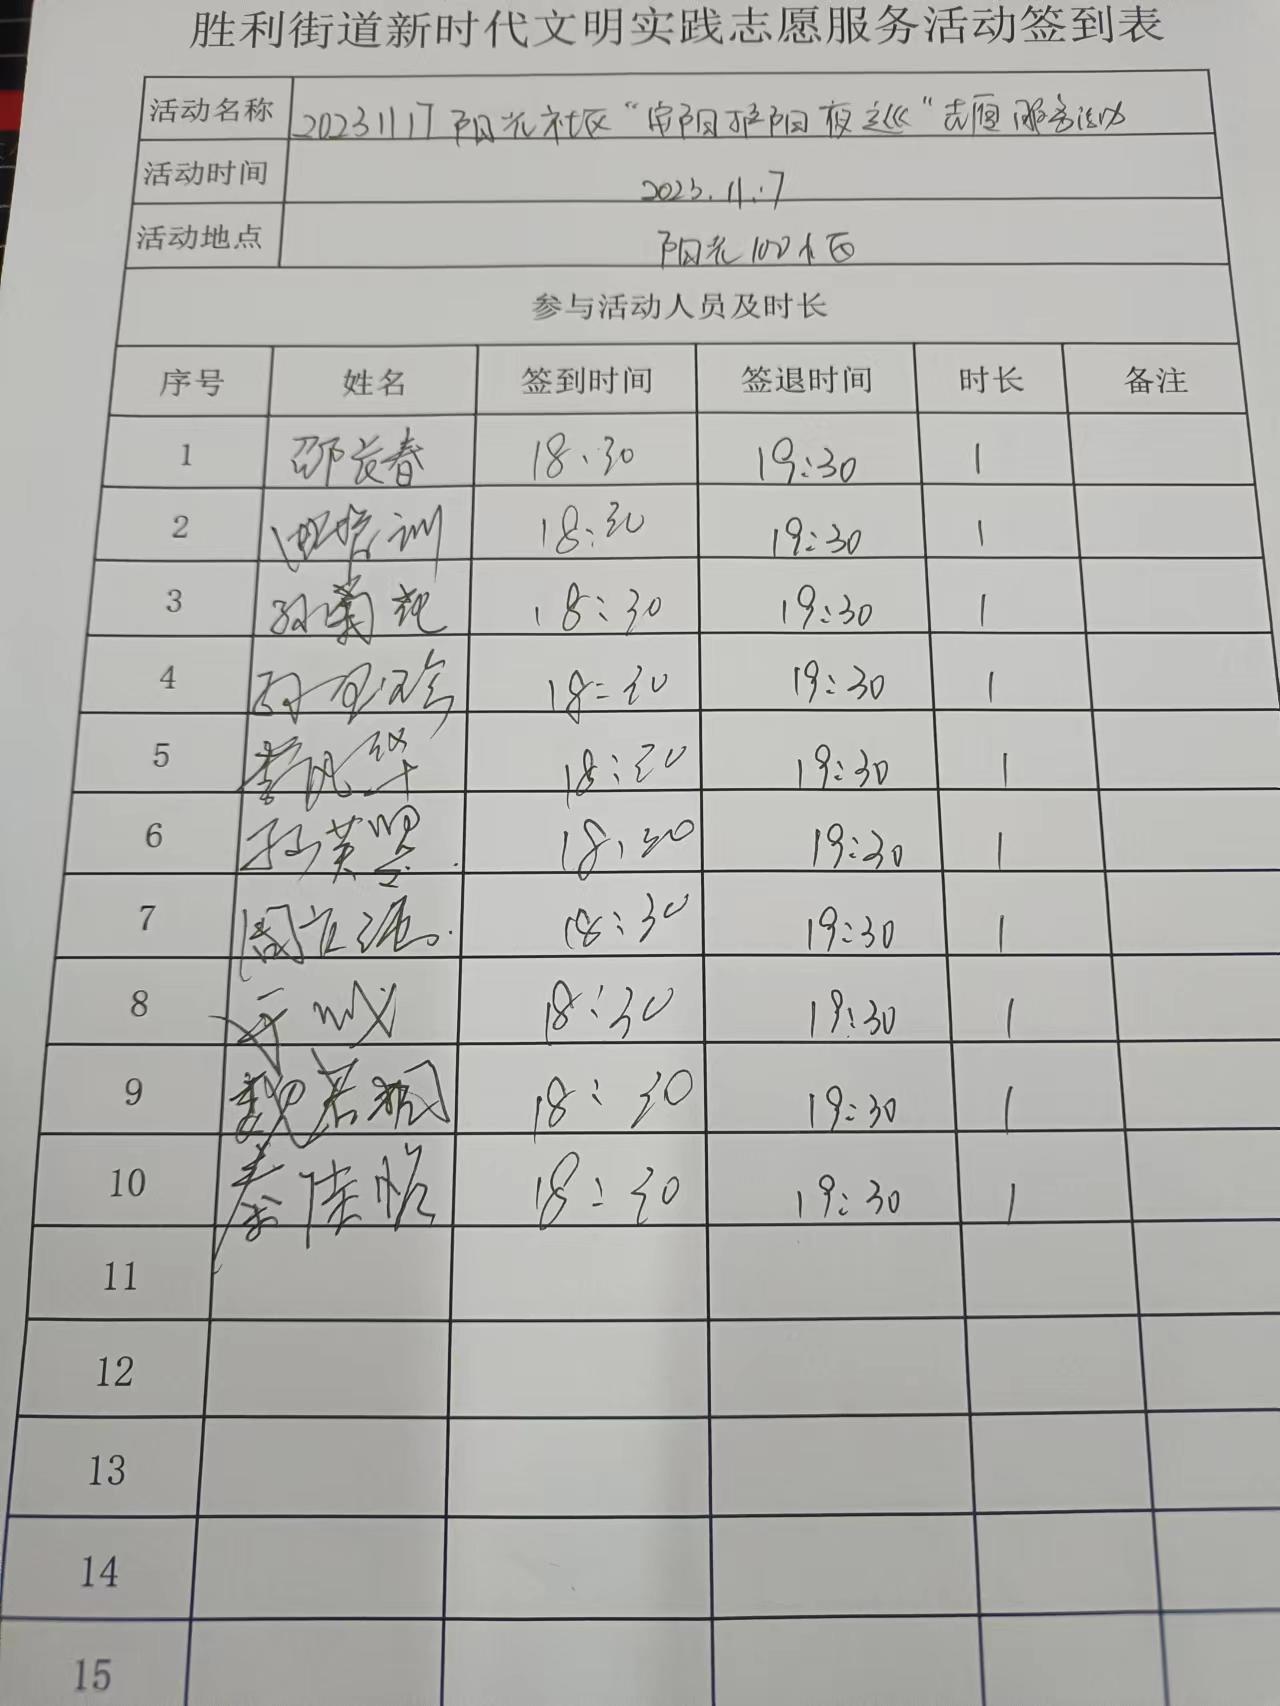 胜利街道新时代文明实践志愿服务活动签到表
活动名称 20231117 阳光社区“ 夜巡”志愿服务活动
活动时间 2023.11.17
活动地点 阳光100小区
参与活动人员及时长
序号 姓名 签到时间 签退时间 时长 备注
1 邵长春 18:30 19:30 1
2 培训 18:30 19:30 1
3 孙菊花 18:30 19:30 1
4 孙 18:30 19:30 1
5 李凤华 18:30 19:30 1
6 孙英 18:30 19:30 1
7 周 18:30 19:30 1
8 18:30 19:30 1
9 魏若桐 18:30 19:30 1
10 秦佳怡 18:30 19:30 1
11
12
13
14
15